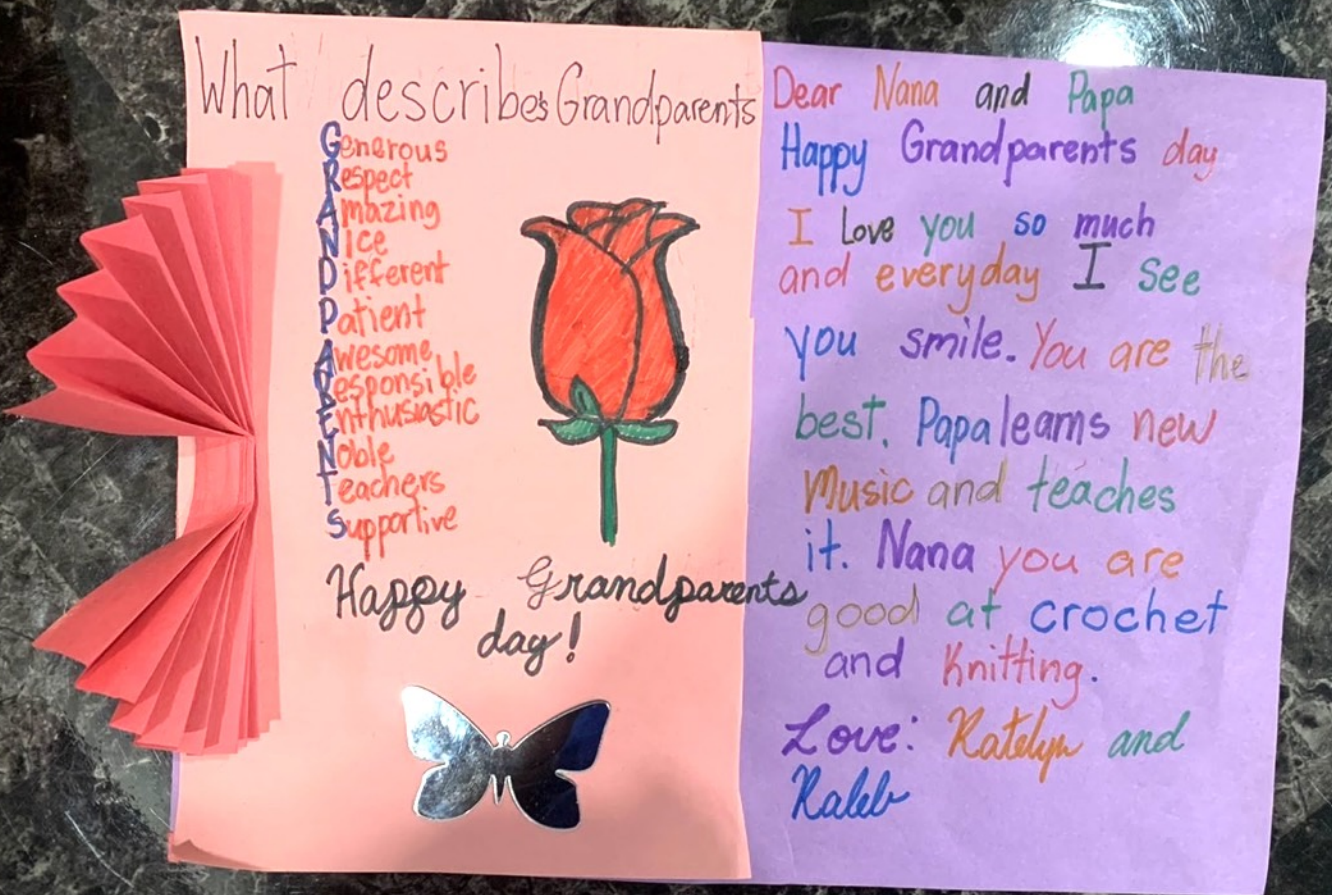 What describes Grandparents
Generous
Respect
Amazing
Nice
Different
Patient
Awesome
Responsible
Enthusiastic
Noble
Teachers
Supportive
Happy Grandparents
day!
Dear Nana and Papa
Happy Grandparents day
I love you so much
and everyday I see
you smile. You are the
best. Papa learns new
Music and teaches
it. Nana you are
good at crochet
and Knitting.
Love: Katelyn and
Kaleb